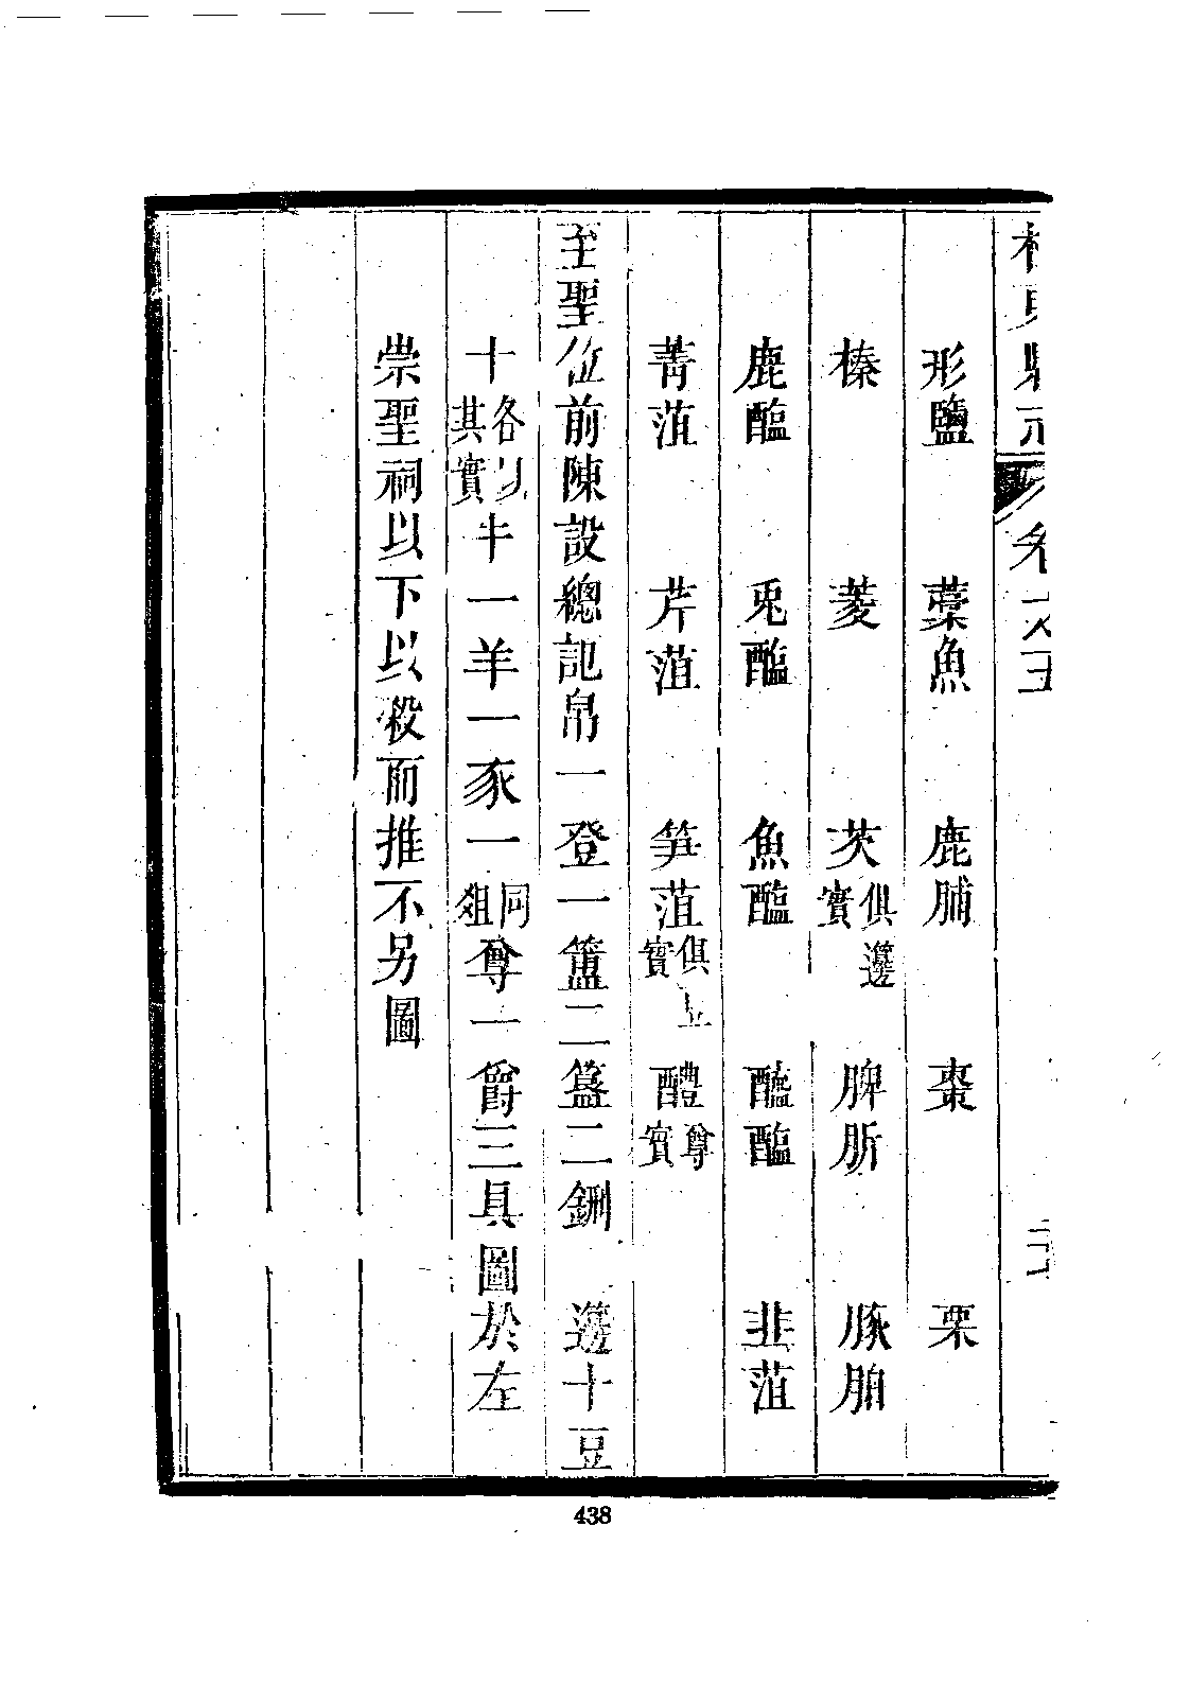 縣志 卷之五
形鹽 藁魚 鹿脯 棗 栗
榛 菱 芡俱籩實 脾肵 豚胉
鹿醢 兎醢 魚醢 醓醢 韭菹
菁菹 芹菹 笋菹俱豆實 醴尊實
至聖位前陳設總記帛一登一簠二簋二鉶 籩十豆
十各以其實牛一羊一豕一同俎尊一爵三具圖於左
崇聖祠以下以殺而推不另圖
438